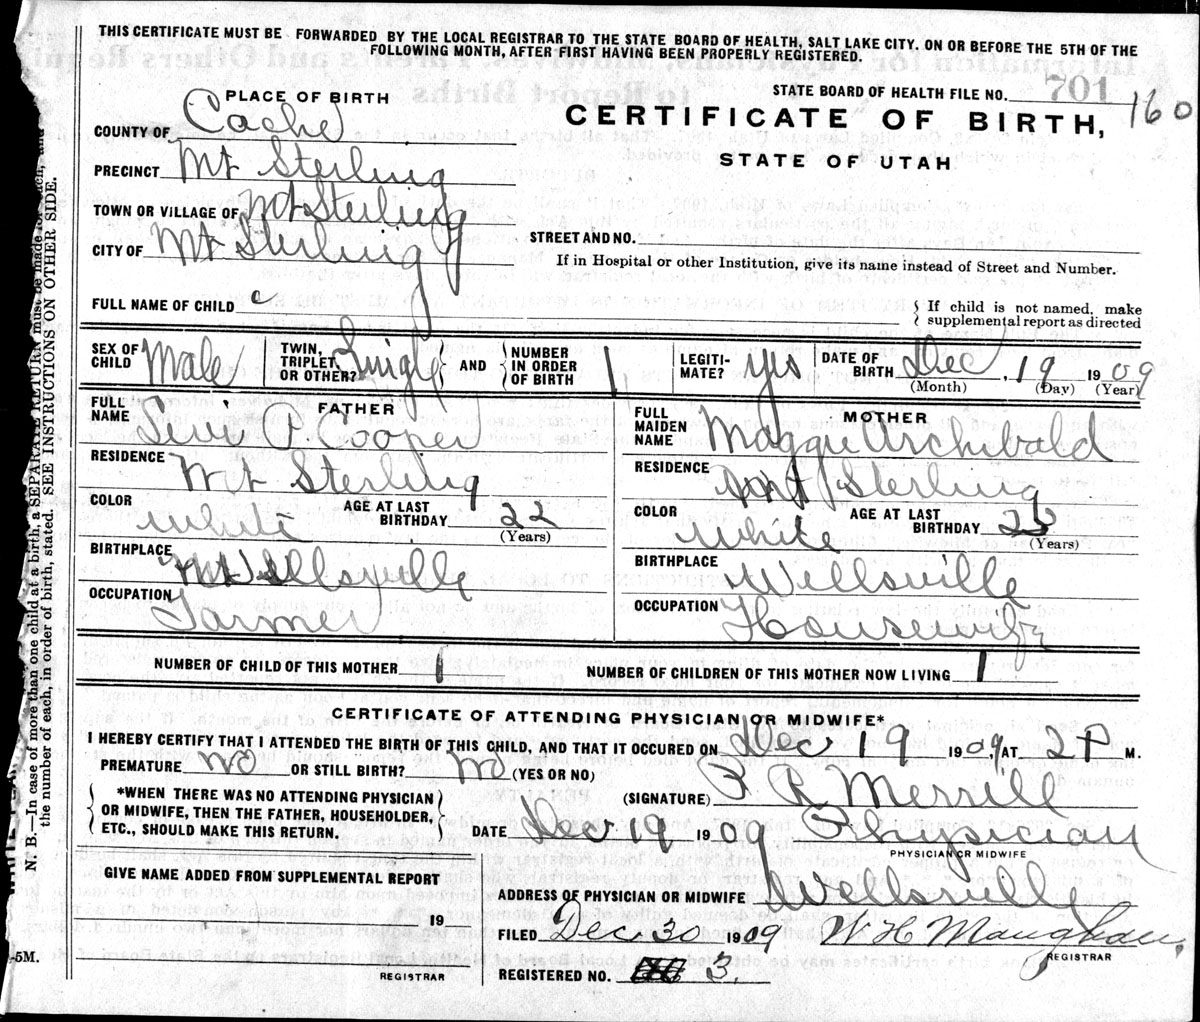 THIS CERTIFICATE MUST BE FORWARDED BY THE LOCAL REGISTRAR TO THE STATE BOARD OF HEALTH, SALT LAKE CITY. ON OR BEFORE THE 5TH OF THE
FOLLOWING MONTH, AFTER FIRST HAVING BEEN PROPERLY REGISTERED.
STATE BOARD OF HEALTH FILE NO. 701
160
PLACE OF BIRTH
CERTIFICATE OF BIRTH,
STATE OF UTAH
COUNTY OF Cache
PRECINCT Mt Sterling
TOWN OR VILLAGE OF Mt Sterling
CITY OF Mt Sterling
STREET AND NO.
If in Hospital or other Institution, give its name instead of Street and Number.
FULL NAME OF CHILD
If child is not named, make
supplemental report as directed
SEX OF CHILD Male
TWIN, TRIPLET, OR OTHER? Single
AND NUMBER IN ORDER OF BIRTH 1
LEGITI-MATE? yes
DATE OF BIRTH Dec, 19 1909
(Month) (Day) (Year)
FATHER
FULL NAME Levi Cooper
RESIDENCE Mt Sterling
COLOR White AGE AT LAST BIRTHDAY 22
(Years)
BIRTHPLACE Wellsville
OCCUPATION Farmer
MOTHER
FULL MAIDEN NAME Maggie Archibald
RESIDENCE Mt Sterling
COLOR White AGE AT LAST BIRTHDAY
(Years)
BIRTHPLACE Wellsville
OCCUPATION Housewife
NUMBER OF CHILD OF THIS MOTHER 1 NUMBER OF CHILDREN OF THIS MOTHER NOW LIVING 1
CERTIFICATE OF ATTENDING PHYSICIAN OR MIDWIFE*
I HEREBY CERTIFY THAT I ATTENDED THE BIRTH OF THIS CHILD, AND THAT IT OCCURED ON Dec 19 1909 AT P M.
PREMATURE No OR STILL BIRTH? No (YES OR NO)
*WHEN THERE WAS NO ATTENDING PHYSICIAN
OR MIDWIFE, THEN THE FATHER, HOUSEHOLDER,
ETC., SHOULD MAKE THIS RETURN.
(SIGNATURE) R Merrill
DATE Dec 19 1909 Physician
PHYSICIAN OR MIDWIFE
GIVE NAME ADDED FROM SUPPLEMENTAL REPORT
19
REGISTRAR
ADDRESS OF PHYSICIAN OR MIDWIFE Wellsville
FILED Dec 30 1909 W H Maughan,
REGISTRAR
REGISTERED NO. 3.
N. B.—In case of more than one child at a birth, a SEPARATE RETURN must be made for each, and
the number of each, in order of birth, stated. SEE INSTRUCTIONS ON OTHER SIDE.
-5M.